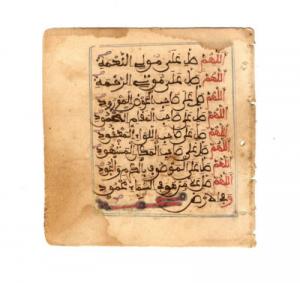 اللهم صل على مولى النعمة
اللهم صل على مولى الرحمة
اللهم صل على صاحب الحوض المورود
اللهم صل على صاحب المقام المحمود
اللهم صل على صاحب اللواء المعقود
اللهم صل على صاحب المكان المشهود
اللهم صل على الموصوف بالكرم والجود
اللهم صل على من هو في السماء محمود
وفي الأرض